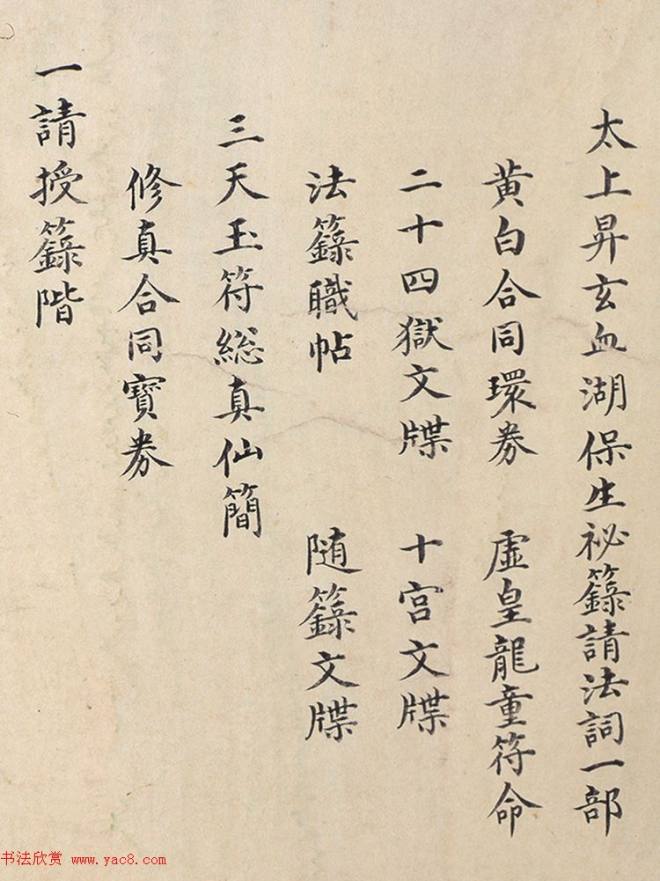 太上昇玄血湖保生祕籙請法詞一部
黄白合同環券　虛皇龍童符命
二十四獄文牒　十宫文牒
法籙職帖　随籙文牒
三天玉符総真仙簡
修真合同寳券
一請授籙階
书法欣赏 www.yac8.com